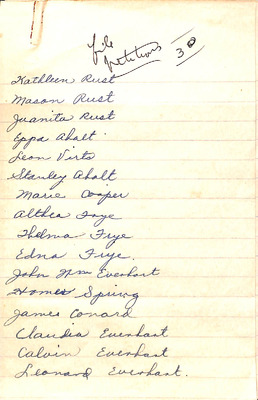 file
petitions 30
Kathleen Rust
Mason Rust
Juanita Rust
Eppa Ahalt
Leon Virts
Stanley Ahalt
Marie Cooper
Althea Frye
Thelma Frye
Edna Frye.
John Wm Everhart
Homer Spring
James Conard
Claudia Everhart
Calvin Everhart
Leonard Everhart.